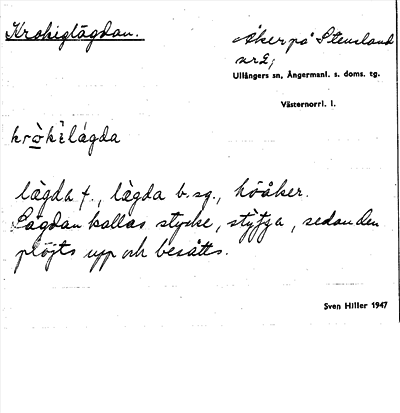 Krokiglägdan.
Åker på Stensland
nr 2;
Ullångers sn, Ångermanl. s. doms. tg.
Västernorrl. l.
kròkìlágda
lägda f., lägda b.sg., höåker.
Lägdan kallas stycke, stytja, sedan den
plöjts upp och besåtts.
Sven Hiller 1947